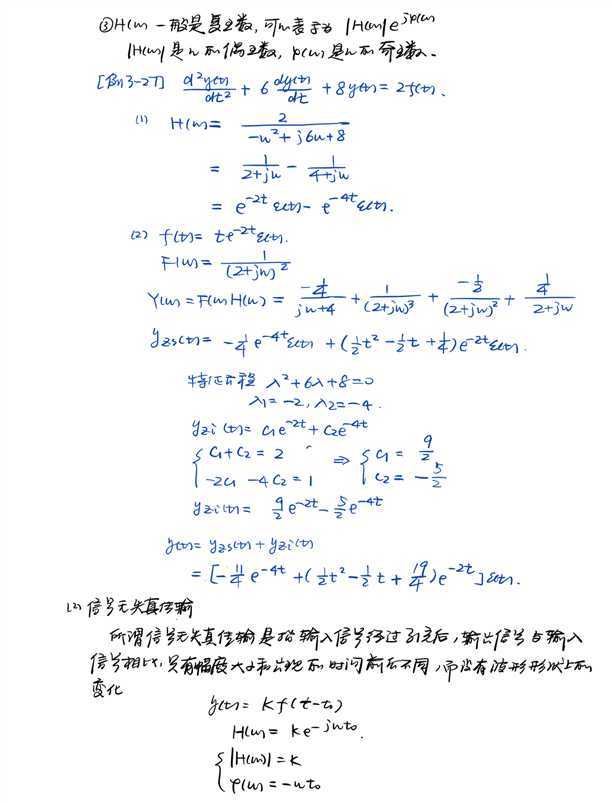 ③H(w) 一般是复函数, 可以表示为 |H(w)|e^{jφ(w)}
|H(w)| 是w的偶函数, φ(w) 是w的奇函数.
[例3-27] d²y(t)/dt² + 6 dy(t)/dt + 8y(t) = 2f(t).
(1) H(w) = 2/(-w²+j6w+8)
= 1/(2+jw) - 1/(4+jw)
= e^{-2t}ε(t) - e^{-4t}ε(t).
(2) f(t) = te^{-2t}ε(t).
F(w) = 1/(2+jw)²
Y(w) = F(w)H(w) = (-1/4)/(jw+4) + 1/(2+jw)³ + (-1/2)/(2+jw)² + (1/4)/(2+jw)
y_{zs}(t) = -1/4 e^{-4t}ε(t) + (1/2 t² - 1/2 t + 1/4)e^{-2t}ε(t).
特征方程 λ²+6λ+8=0
λ1 = -2, λ2 = -4.
y_{zi}(t) = c1e^{-2t} + c2e^{-4t}
{ c1+c2 = 2 ⇒ { c1 = 9/2
-2c1 -4c2 = 1 c2 = -5/2
y_{zi}(t) = 9/2 e^{-2t} - 5/2 e^{-4t}
y(t) = y_{zs}(t) + y_{zi}(t)
= [-11/4 e^{-4t} + (1/2 t² - 1/2 t + 19/4)e^{-2t}]ε(t).
(2) 信号无失真传输
所谓信号无失真传输是指输入信号经过系统后, 输出信号与输入
信号相比, 只有幅度大小和出现的时间前后不同, 而没有波形形状上的
变化
y(t) = Kf(t-t₀)
H(w) = Ke^{-jwt₀}.
{ |H(w)| = K
φ(w) = -wt₀